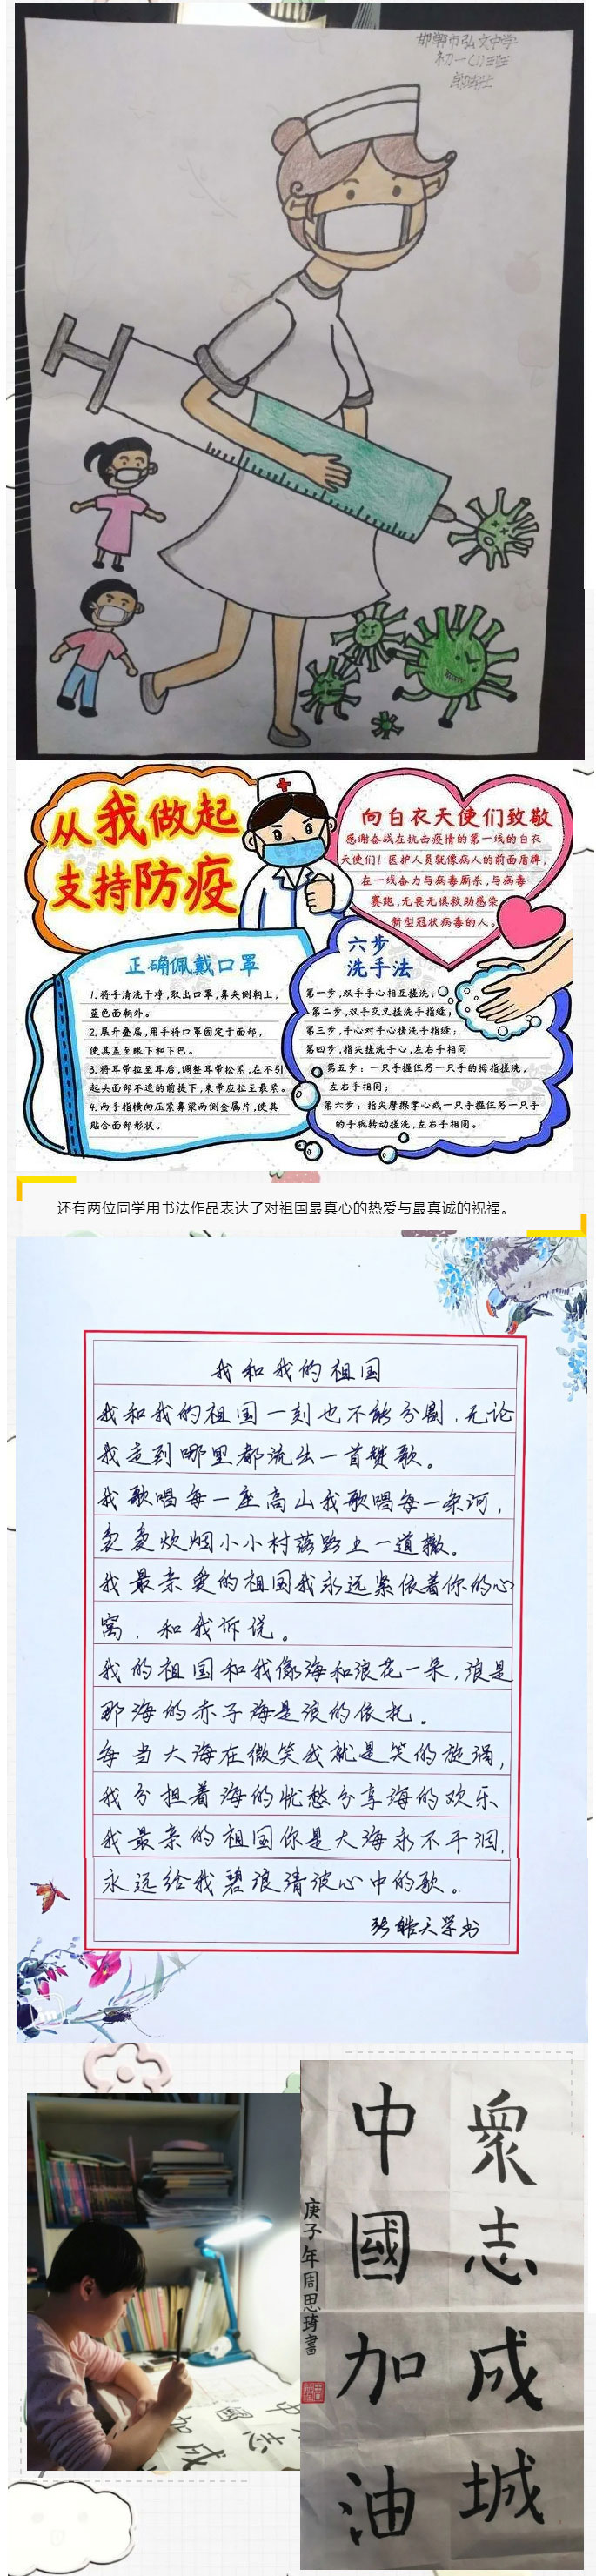 邯郸市弘文中学
初一(1)班
从我做起
支持防疫
向白衣天使们致敬
感谢奋战在抗击疫情的第一线的白衣
天使们！医护人员就像病人的前面盾牌,
在一线奋力与病毒厮杀,与病毒
赛跑,无畏无惧救助感染
新型冠状病毒的人。
正确佩戴口罩
1.将手清洗干净,取出口罩,鼻夹侧朝上,
蓝色面朝外。
2.展开叠层,用手将口罩固定于面部,
使其盖至眼下和下巴。
3.将耳带拉至耳后,调整耳带松紧,在不引
起头面部不适的前提下,束带应拉至最紧。
4.两手指横向压紧鼻梁两侧金属片,使其
贴合面部形状。
六步
洗手法
第一步,双手手心相互搓洗;
第二步,双手交叉搓洗手指缝;
第三步,手心对手心搓洗手指缝;
第四步,指尖搓洗手心,左右手相同
第五步：一只手握住另一只手的拇指搓洗,
左右手相同;
第六步：指尖摩擦掌心或一只手握住另一只手
的手腕转动搓洗,左右手相同。
还有两位同学用书法作品表达了对祖国最真心的热爱与最真诚的祝福。
我和我的祖国
我和我的祖国一刻也不能分割,无论
我走到哪里都流出一首赞歌。
我歌唱每一座高山我歌唱每一条河,
袅袅炊烟小小村落路上一道辙。
我最亲爱的祖国我永远紧依着你的心
窝,和我诉说。
我的祖国和我像海和浪花一朵,浪是
那海的赤子海是浪的依托。
每当大海在微笑我就是笑的旋涡,
我分担着海的忧愁分享海的欢乐
我最亲的祖国你是大海永不干涸,
永远给我碧浪清波心中的歌。
张皓天学书
衆志成城
中國加油
庚子年周思琦書
中國
志
加
成